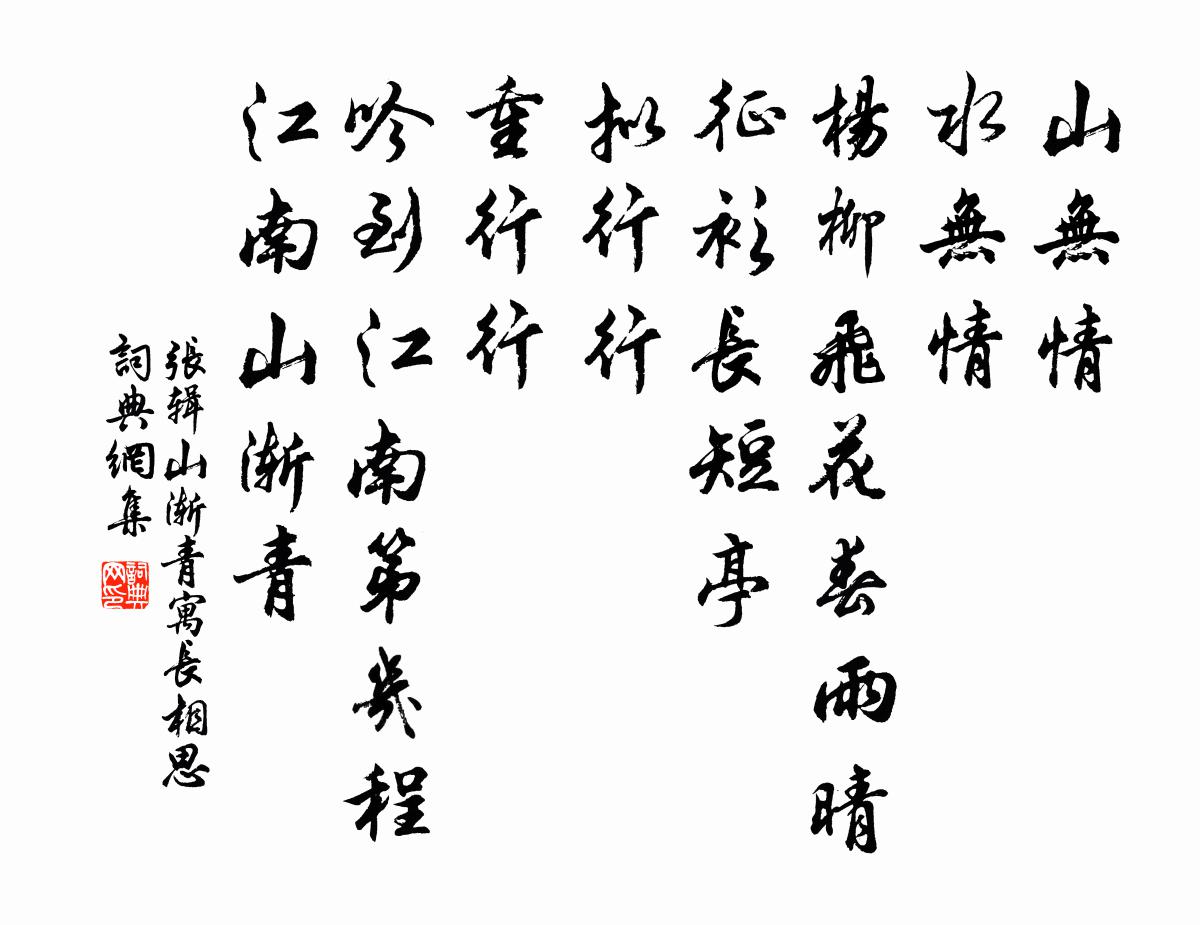 山無情
水無情
楊柳飛花春雨晴
征衫長短亭
拟行行
重行行
吟到江南第幾程
江南山漸青
張辑山漸青寓長相思
詞典網集
詞典网印